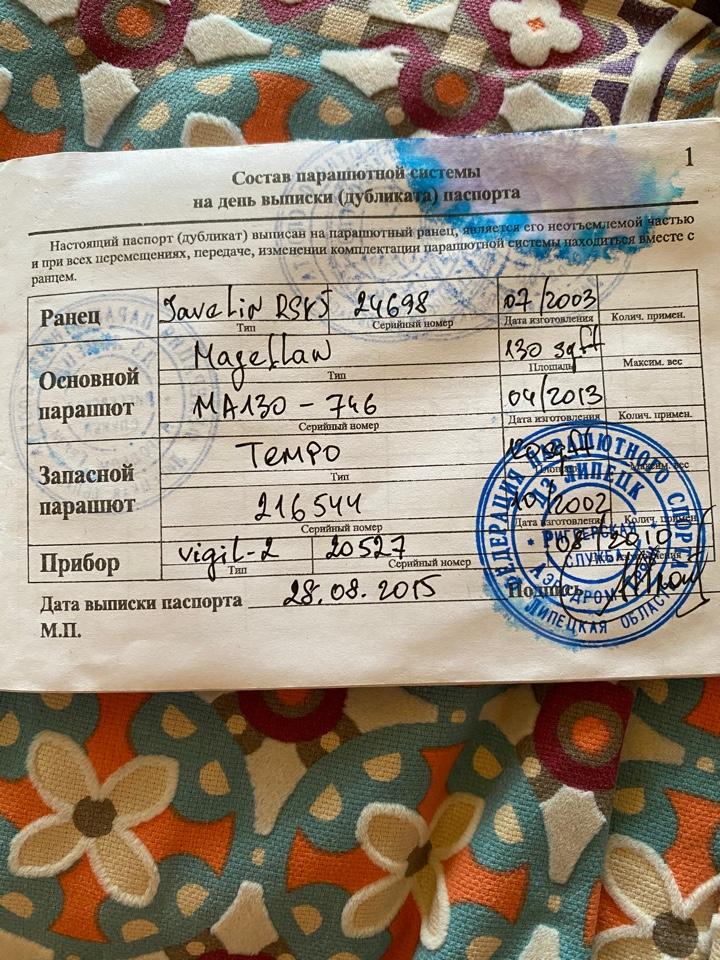 1
Состав парашютной системы
на день выписки (дубликата) паспорта
Настоящий паспорт (дубликат) выписан на парашютный ранец, является его неотъемлемой частью
и при всех перемещениях, передаче, изменении комплектации парашютной системы находиться вместе с
ранцем.
Ранец Javelin 24698 07/2003
Тип Серийный номер Дата изготовления Колич. примен.
Основной парашют
Magellan 130 sqft
Тип Площадь Максим. вес
MA130 - 746 04/2013
Серийный номер Дата изготовления Колич. примен.
Запасной парашют
Tempo
Тип Площадь Максим. вес
216544 10/2002
Серийный номер Дата изготовления Колич. примен.
Прибор vigil-2 20527 08 2010
Тип Серийный номер
Дата выписки паспорта 28.08.2015 Подпись
М.П.
ФЕДЕРАЦИЯ ПАРАШЮТНОГО СПОРТА
ЛИПЕЦК
РИГГЕРСКАЯ
СЛУЖБА
АЭРОДРОМ
ЛИПЕЦКАЯ ОБЛАСТЬ